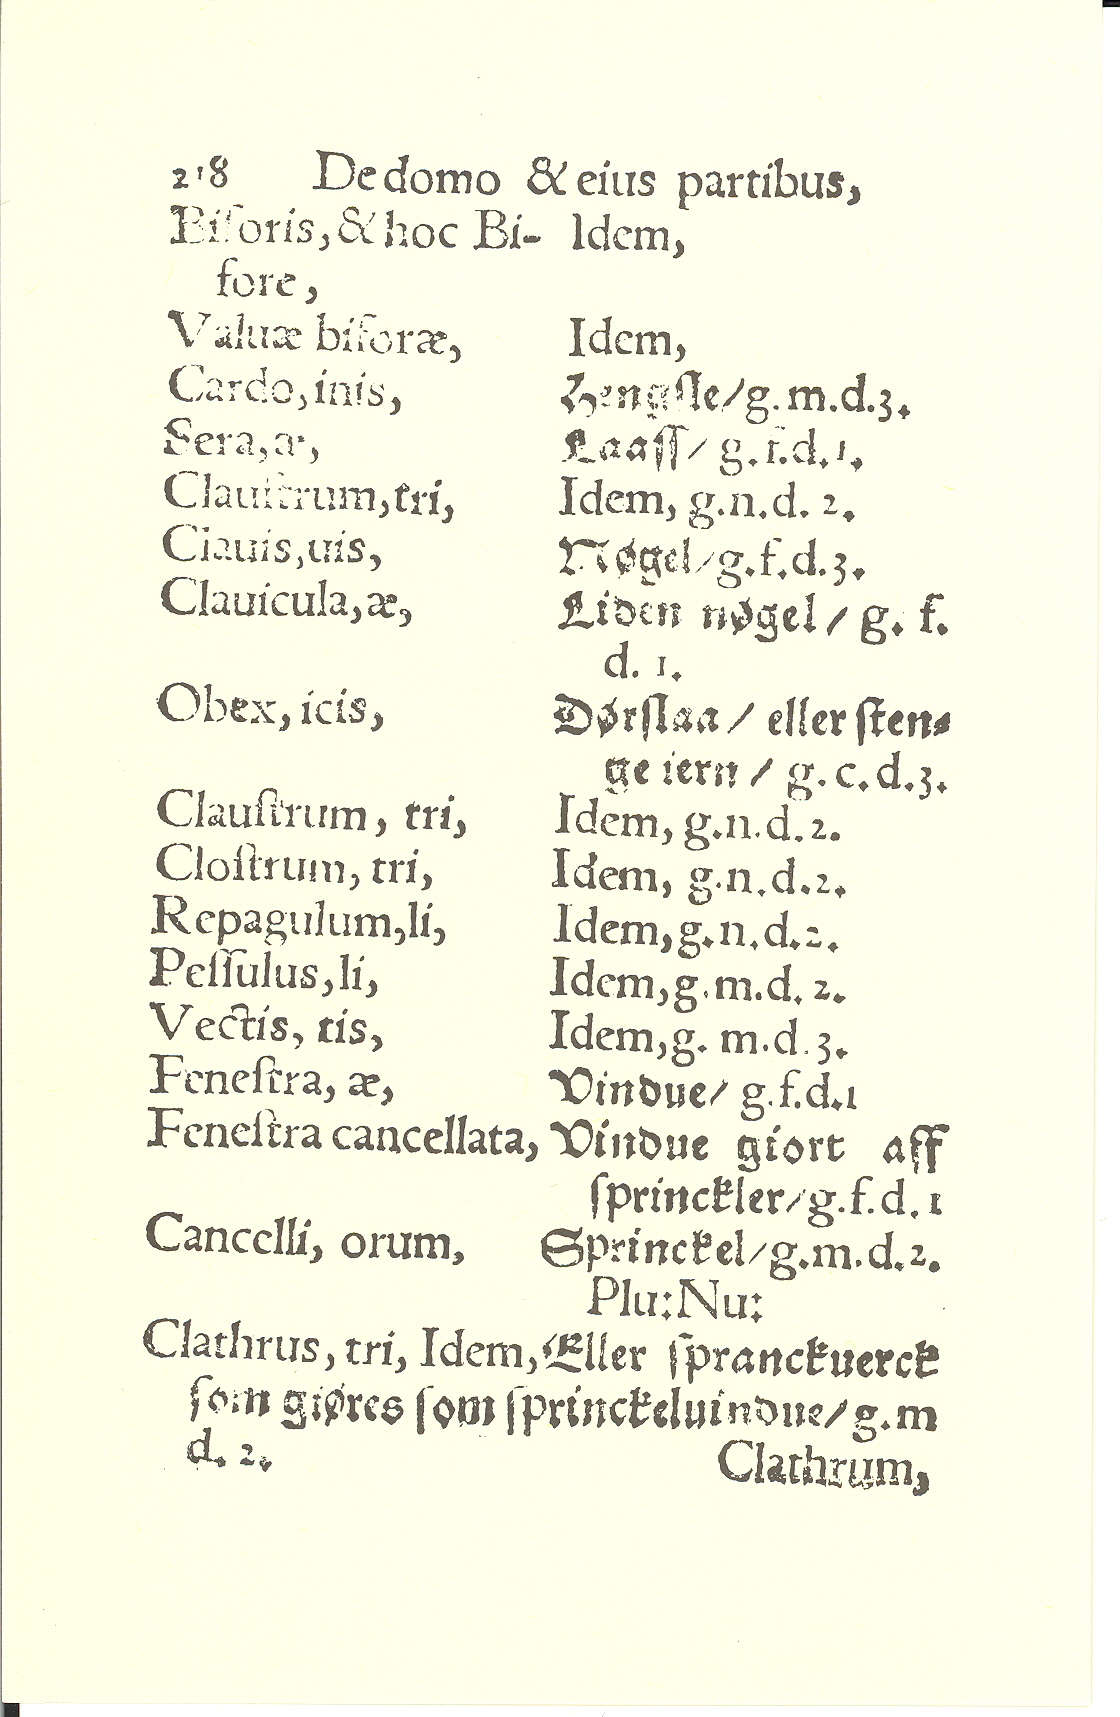 218 De domo & eius partibus,
Biforis, & hoc Bi- Idem,
fore,
Valuæ biforæ, Idem,
Cardo, inis, Hengſle/ g. m. d. 3.
Sera, æ, Laaſſ/ g. f. d. 1.
Clauſtrum, tri, Idem, g. n. d. 2.
Clauis, uis, Nøgel/ g. f. d. 3.
Clauicula, æ, Liden nøgel/ g. f.
d. 1.
Obex, icis, Dørſlaa/ eller ſten⸗
ge iern/ g. c. d. 3.
Clauſtrum, tri, Idem, g. n. d. 2.
Cloſtrum, tri, Idem, g. n. d. 2.
Repagulum, li, Idem, g. n. d. 2.
Peſſulus, li, Idem, g. m. d. 2.
Vectis, tis, Idem, g. m. d. 3.
Feneſtra, æ, Vindue/ g. f. d. 1
Feneſtra cancellata, Vindue giort aff
ſprinckler/ g. f. d. 1
Cancelli, orum, Sprinckel/ g. m. d. 2.
Plu: Nu:
Clathrus, tri, Idem, Eller ſpranckuerck
ſom giøres ſom ſprinckeluindue/ g. m
d. 2.
Clathrum,